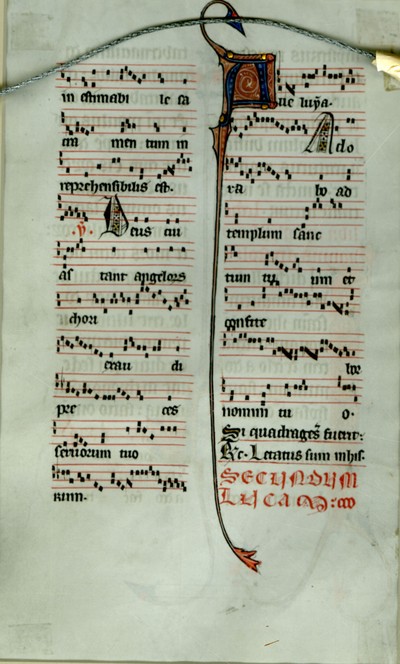 in estimabi le sa
cra men tum in
reprehensibilis est.
℣. Deus cui
as tant angelorz
chori
exau di
pre ces
seruorum tuo
rum.
A lle luya.
Ado
ra bo ad
templum sanc
tum tu um et
confite
bor
nomini tu o.
Si quadrages fuerit:
Letatus sum in his.
SECUNDUM
LUCAM: